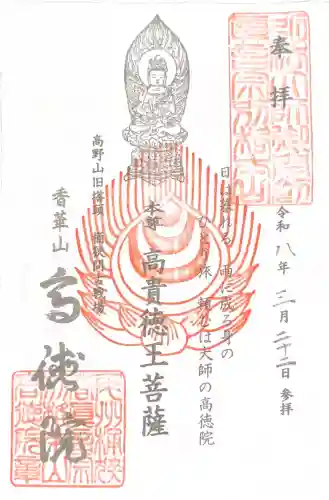 奉拝
令和八年三月二十二日参拝
日は暮れる 雨に成る身の
ひとり旅 頼むは大師の高徳院
本尊 高貴徳王菩薩
高野山旧塔頭 桶狭間古戦場
香華山
高徳院